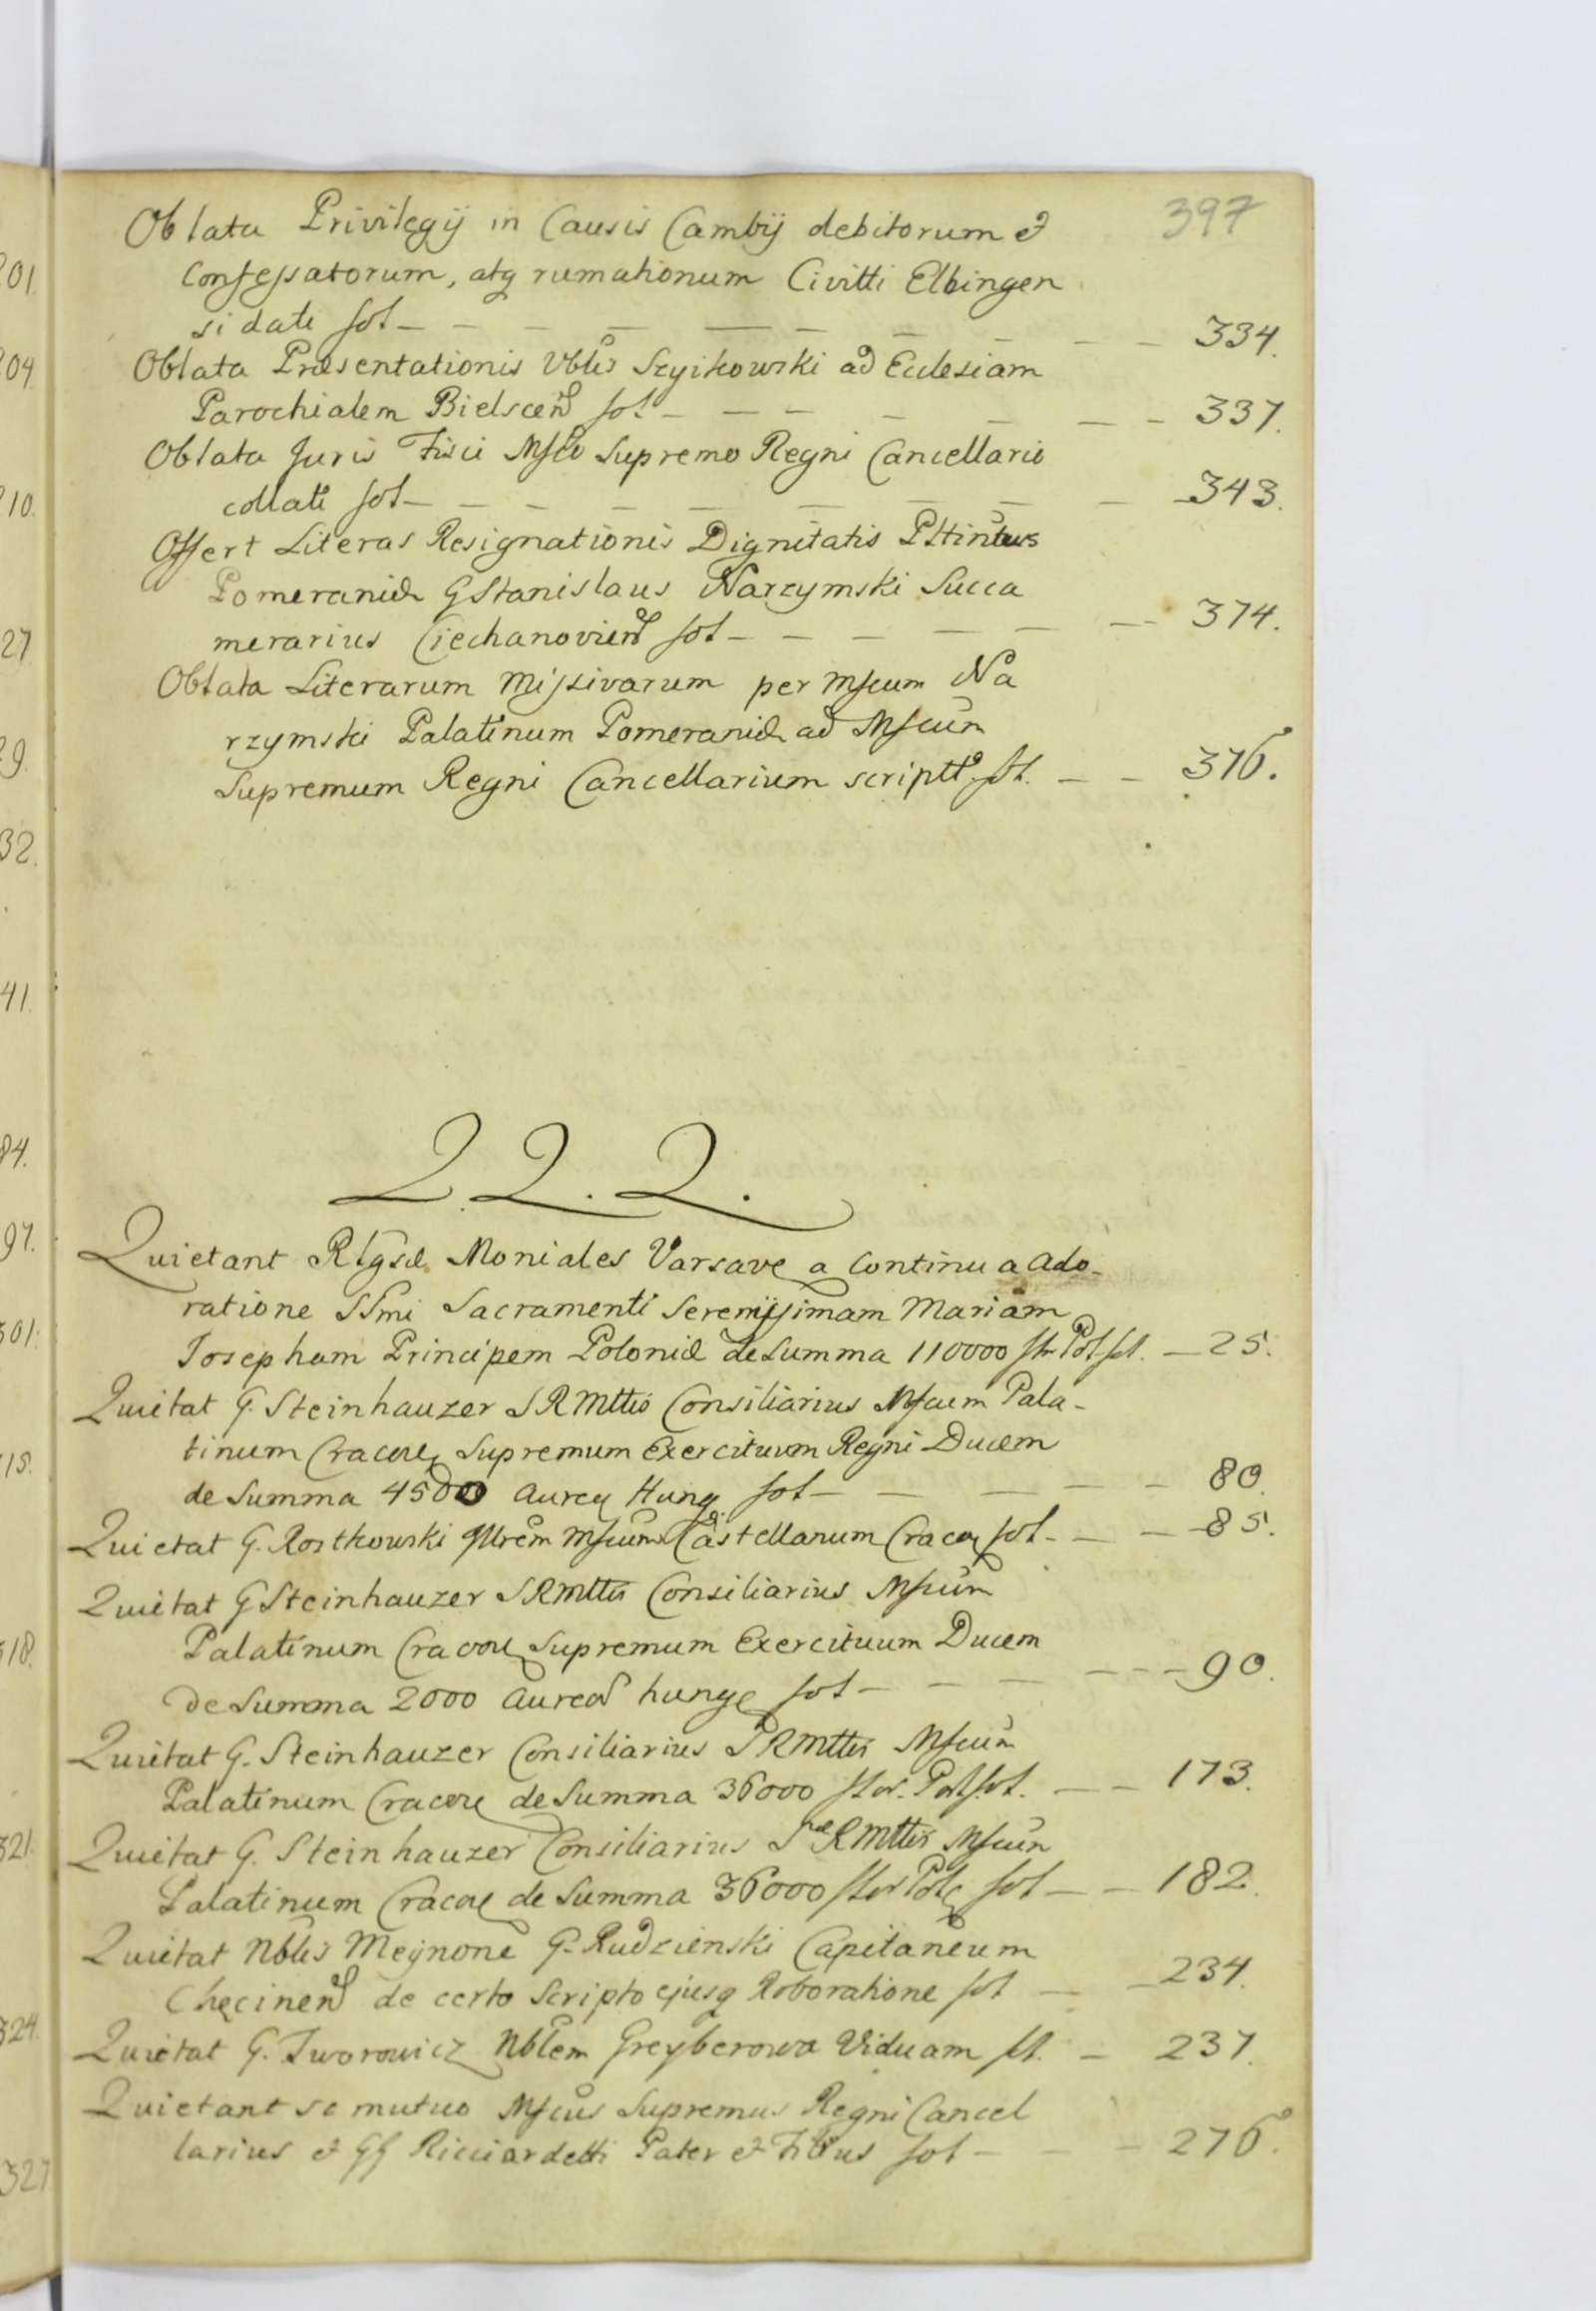 397
Oblata Privilegij in Causis Cambij debitorum et
Confessatorum, atq rumationum Civitti Elbingen
si dati fol 334.
Oblata Præsentationis Vblis Szyikowski ad Eclesiam
Parochialem Bielscen fol 337.
Oblata Juris Fisci Mfco Supremo Regni Cancellario
collati fol 343.
Offert Literas Resignationis Dignitatis Plttintus
Pomeraniæ G Stanislaus Narzymski Succa
merarius Ciechanovien fol 374.
Oblata Literarum Missivarum per Mfcum Na
rzymski Palatinum Pomeraniæ ad Mfcum
Supremum Regni Cancellarium scriptt fol. 376.
Q. Q. Q.
Quietant Rlgsæ Moniales Varsave a Continua Ado-
ratione SSmi Sacramenti Serenissimam Mariam
Josepham Principem Poloniæ de Summa 110000 flr Pol fol. 25.
Quietat G. Steinhauzer S R Mttis Consiliarius Mfcum Pala-
tinum Cracov Supremum Exercituum Regni Ducem
de Summa 4500 Aureor Hung fol 80.
Quietat G. Rostkowski Illrem Mfcum Castellanum Cracov fol 85.
Quietat G Steinhauzer S R Mttis Consiliarius Mfcum
Palatinum Cracov Supremum Exercituum Ducem
de Summa 2000 Aureor hung fol 90.
Quietat G. Steinhauzer Consiliarius S R Mttis Mfcum
Palatinum Cracov de Summa 36000 flor. Pol fol. 173.
Quietat G. Steinhauzer Consiliarius Sræ R Mttis Mfcum
Palatinum Cracov de Summa 36000 flor Pol fol 182.
Quietat Nblis Meynone G. Rudzienski Capitaneum
Chęcinen de certo Scripto ejusq Roboratione fol 234.
Quietat G. Jworowicz Nblem Greyberowa Viduam fol. 237.
Quietant se mutuo Mfcus Supremus Regni Cancel
larius et GG Ricciardetti Pater et Filius fol 276.